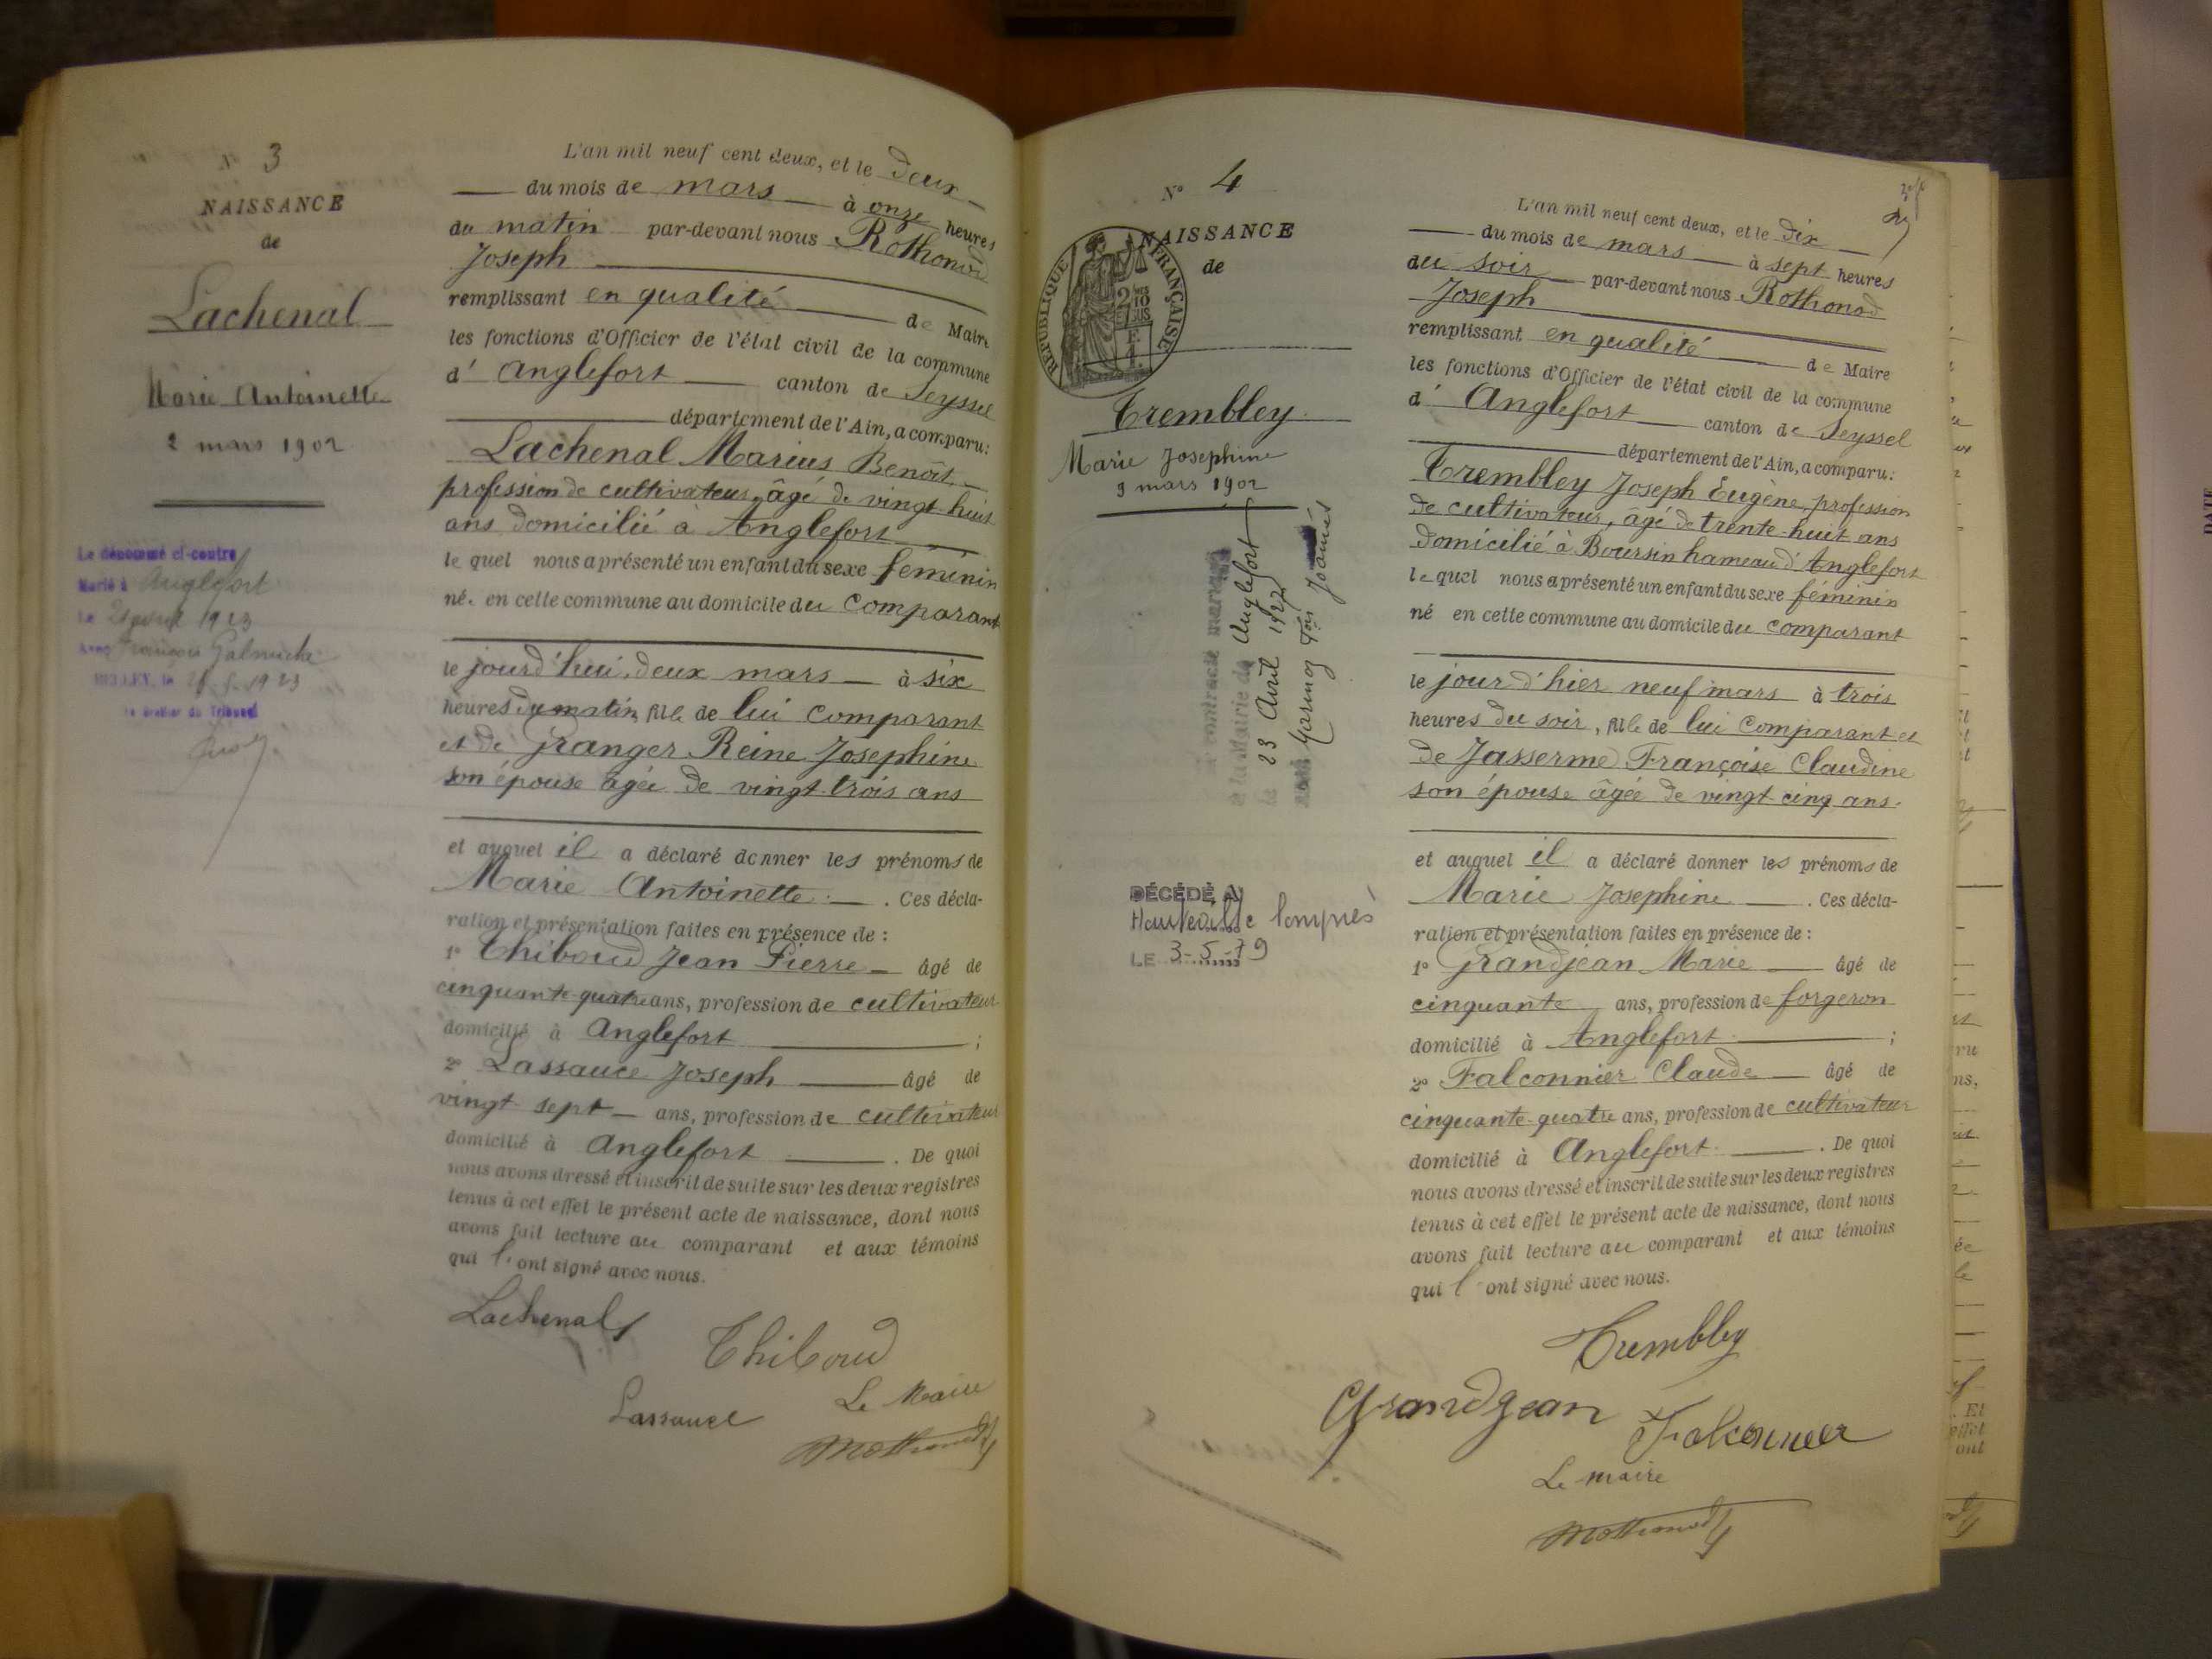 N° 3
NAISSANCE
de
Lachenal
Marie Antoinette
2 mars 1902
Le dénommé ci-contre
Marié à Anglefort
Le 21 avril 1923
Avec François
BELLEY, le 1923
Le Greffier du Tribunal
L'an mil neuf cent deux, et le deux
du mois de mars à onze heures
du matin par-devant nous Rothonod
Joseph
remplissant en qualité de Maire
les fonctions d'Officier de l'état civil de la commune
d' Anglefort canton de Seyssel
département de l'Ain, a comparu:
Lachenal Marius Benoît
profession de cultivateur, âgé de vingt-huit
ans domicilié à Anglefort
le quel nous a présenté un enfant du sexe féminin
né. en cette commune au domicile du comparant
le jourd'hui, deux mars à six
heures du matin, fille de lui comparant
et de Granger Reine Josephine
son épouse âgée de vingt-trois ans
et auquel il a déclaré donner les prénoms de
Marie Antoinette. Ces décla-
ration et présentation faites en présence de :
1° Thiboud Jean Pierre âgé de
cinquante-quatre ans, profession de cultivateur
domicilié à Anglefort ;
2° Lassauce Joseph âgé de
vingt-sept ans, profession de cultivateur
domicilié à Anglefort . De quoi
nous avons dressé et inscrit de suite sur les deux registres
tenus à cet effet le présent acte de naissance, dont nous
avons fait lecture au comparant et aux témoins
qui l'ont signé avec nous.
Lachenal
Thiboud
Lassauce
Le Maire
Rothonod
N° 4
NAISSANCE
de
RÉPUBLIQUE FRANÇAISE
2/10 EN SUS
Trembley
Marie Josephine
9 mars 1902
A contracté mariage
à la Mairie de Anglefort
le 23 Avril 1927
avec Joannès
DÉCÉDÉ A
Hauteville Lompnès
LE 3-5-79
L'an mil neuf cent deux, et le dix
du mois de mars à sept heures
du soir par-devant nous Rothonod
Joseph
remplissant en qualité de Maire
les fonctions d'Officier de l'état civil de la commune
d' Anglefort canton de Seyssel
département de l'Ain, a comparu:
Trembley Joseph Eugène, profession
de cultivateur, âgé de trente-huit ans
domicilié à Boursin hameau d'Anglefort
le quel nous a présenté un enfant du sexe féminin
né en cette commune au domicile du comparant
le jour d'hier neuf mars à trois
heures du soir, fille de lui comparant et
de Jasserme Françoise Claudine
son épouse âgée de vingt-cinq ans.
et auquel il a déclaré donner les prénoms de
Marie Josephine . Ces décla-
ration et présentation faites en présence de :
1° Grandjean Marie âgé de
cinquante ans, profession de forgeron
domicilié à Anglefort ;
2° Falconnier Claude âgé de
cinquante-quatre ans, profession de cultivateur
domicilié à Anglefort . De quoi
nous avons dressé et inscrit de suite sur les deux registres
tenus à cet effet le présent acte de naissance, dont nous
avons fait lecture au comparant et aux témoins
qui l'ont signé avec nous.
Trembley
Grandjean
Falconnier
Le maire
Rothonod
DATE